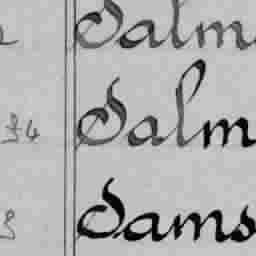 Salm
34 Salm
Sams